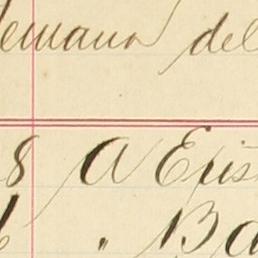 emana del
8 A Exis
" Ba